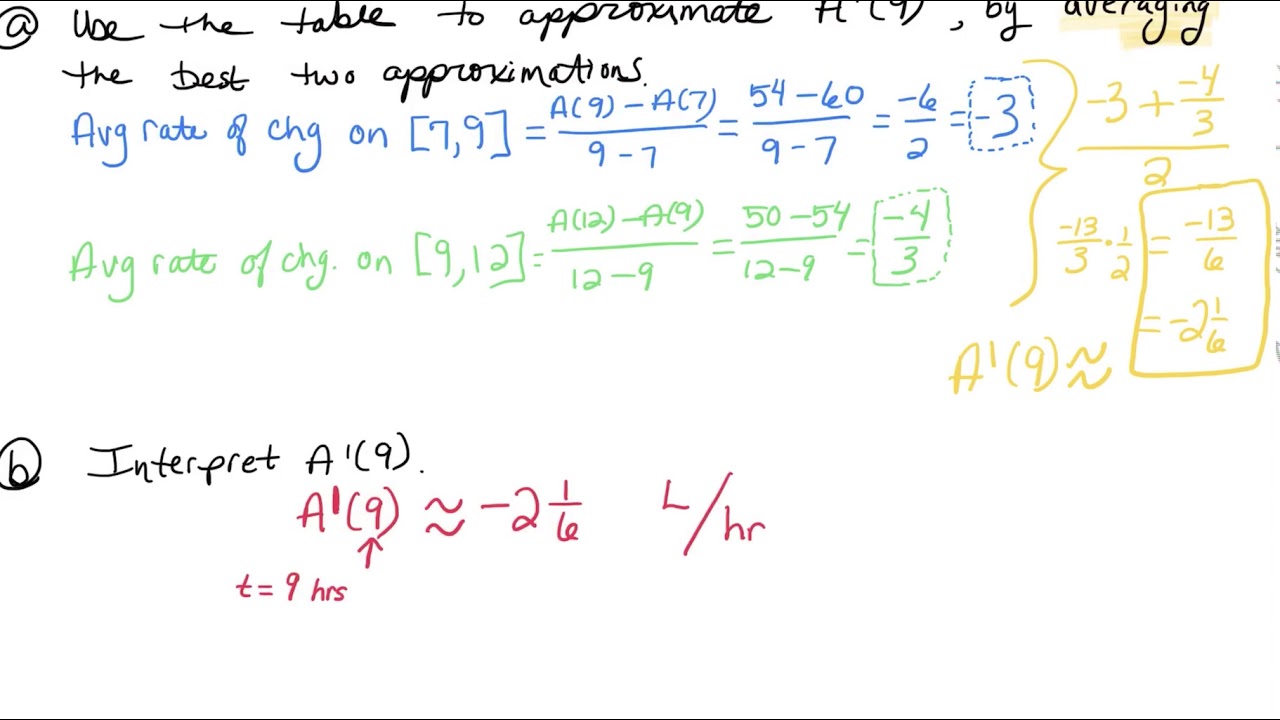 ⓐ Use the table to approximate A'(9), by averaging
the best two approximations.
Avg rate of chg on [7,9] = (A(9) - A(7))/(9 - 7) = (54 - 60)/(9 - 7) = -6/2 = -3
Avg rate of chg. on [9,12] = (A(12) - A(9))/(12 - 9) = (50 - 54)/(12 - 9) = -4/3
(-3 + -4/3)/2
-13/3 · 1/2 = -13/6
= -2 1/6
A'(9) ≈
ⓑ Interpret A'(9).
A'(9) ≈ -2 1/6 L/hr
t = 9 hrs